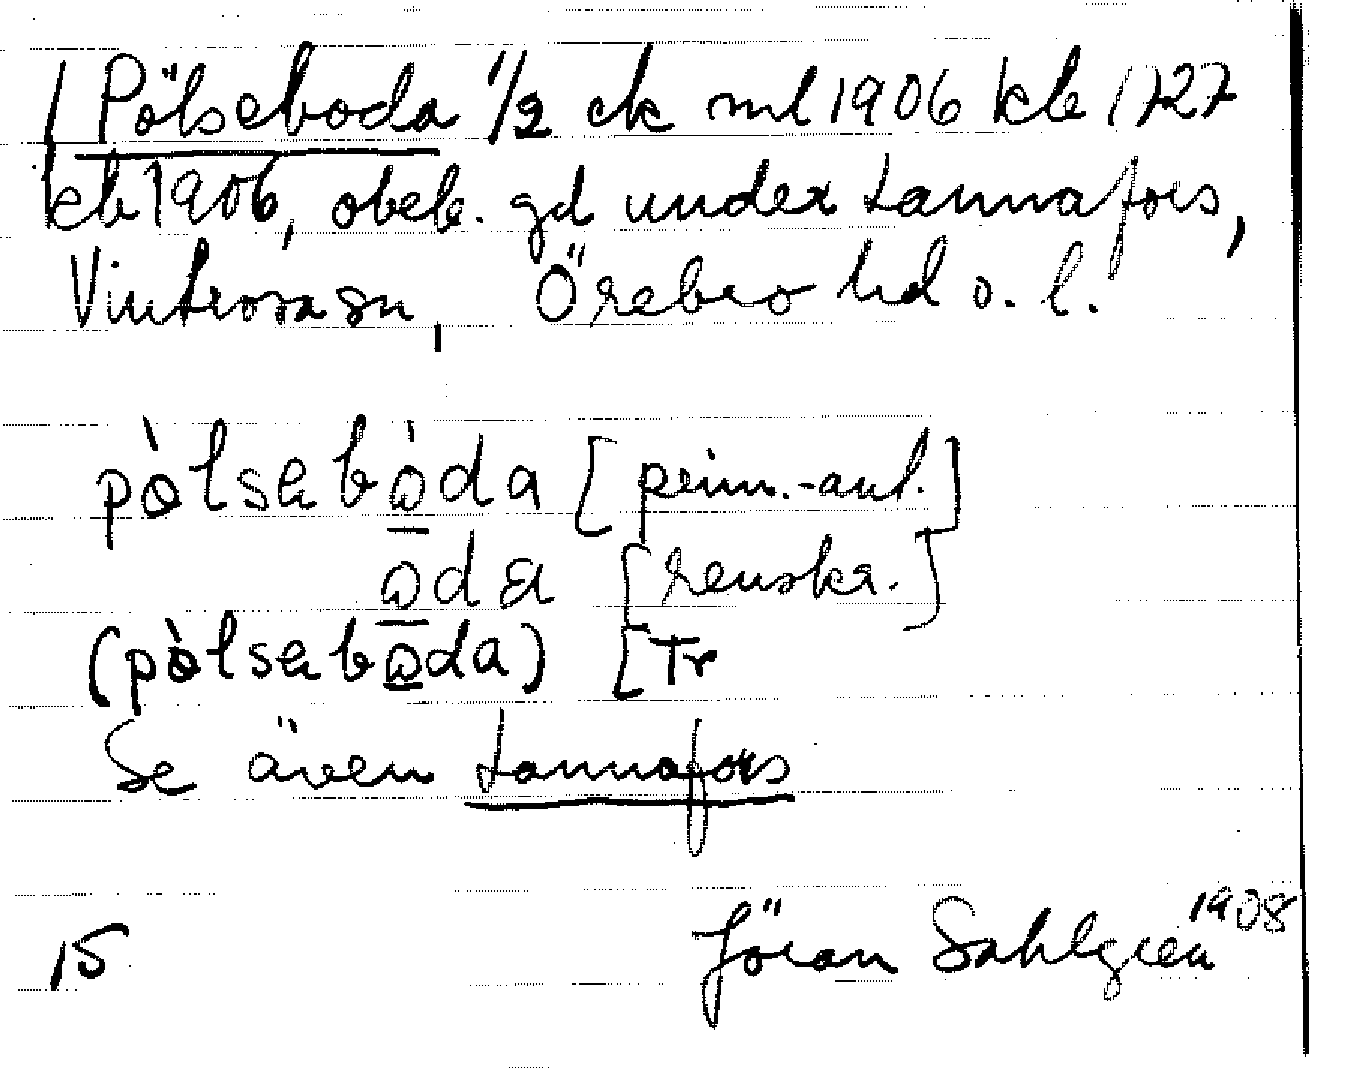 Pölseboda 1/2 ck ml 1906 kb 1727
kb 1906, obeb. gd under Lannafors,
Vintrosa sn, Örebro hd o. l.
pòlsebòda [prim.-ant.]
oda [renskr.]
(pòlseboda) [Tr
Se även Lannafors
15 Jöran Sahlgren 1908